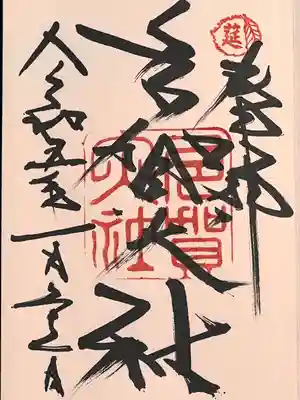 莚
奉拝
多賀大社
多賀
大社
令和五年一月 日